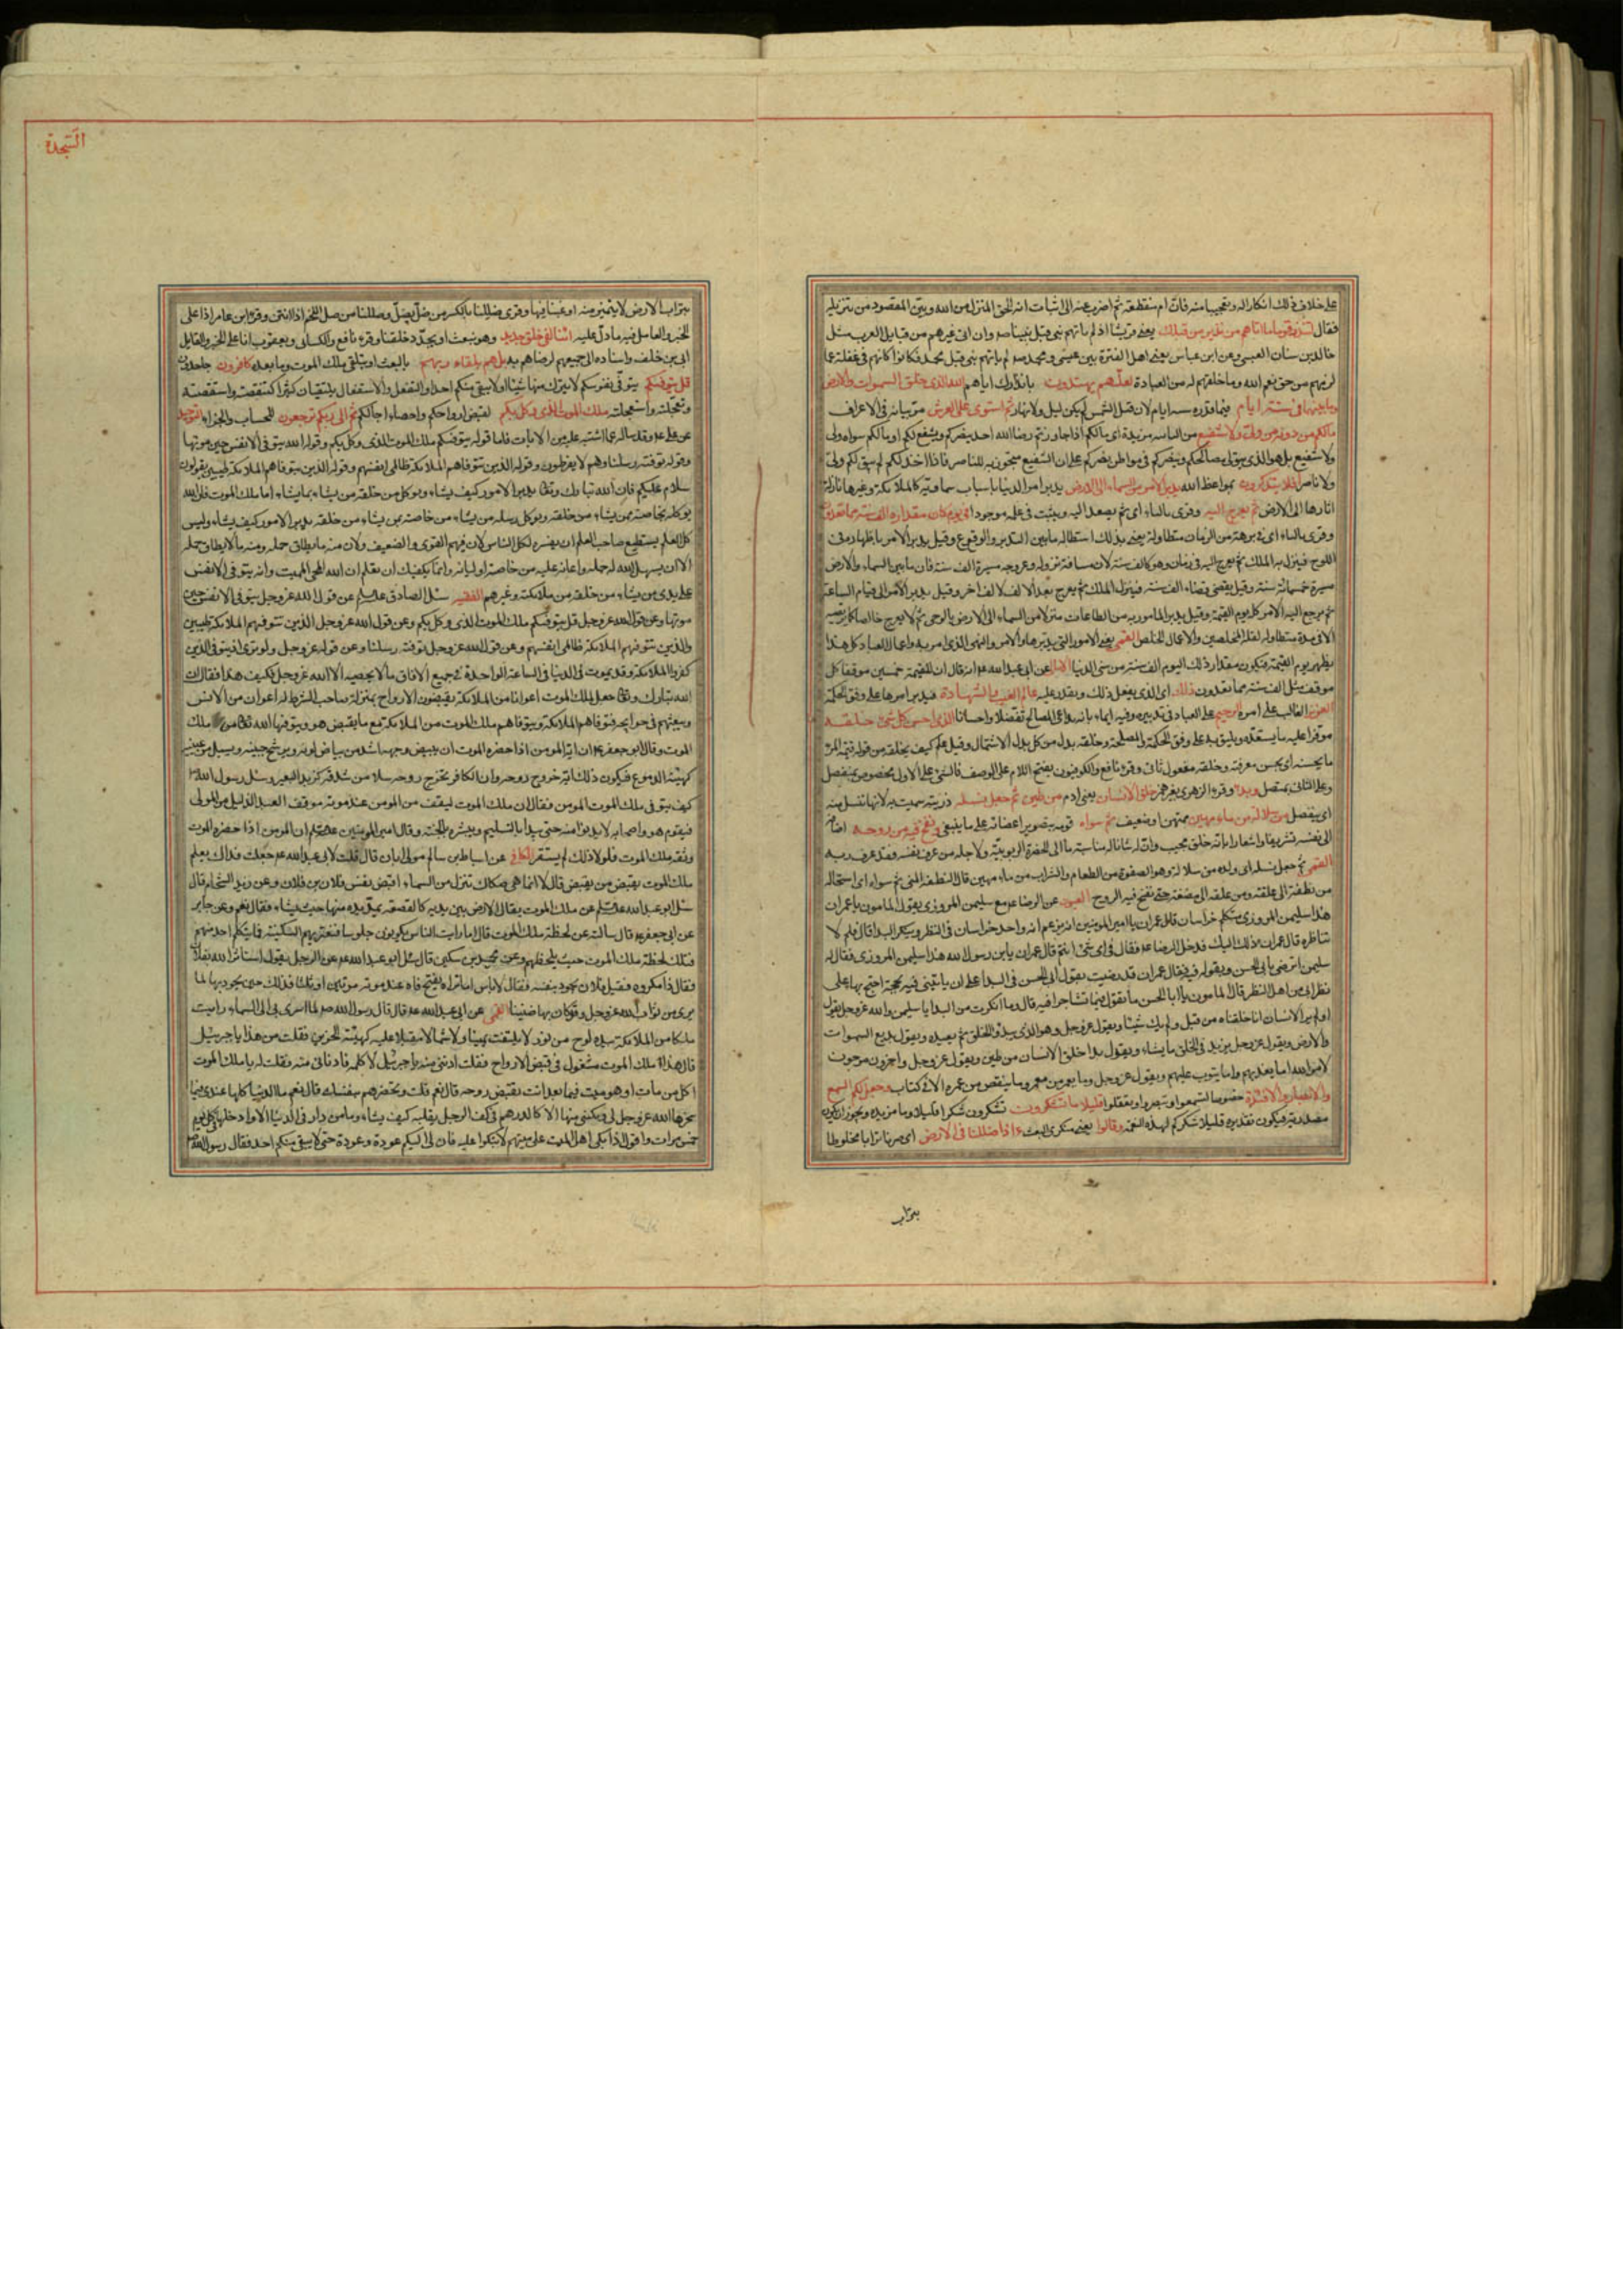 السجدة
على خلاف ذلك انكارا له وتعجيبا منه فان ام منقطعة ثم اضرب عنه الى اثبات انه الحق المنزل من الله وبين المقصود من تنزيله
فقال لتنذر قوما ما اتاهم من نذير من قبلك يعنى قريشا اذ لم ياتهم نبى قبل نبينا صم وان اتى غيرهم من قبايل العرب مثل
خالد بن سنان العبسى وعن ابن عباس يعنى اهل الفترة بين عيسى ومحمد صم لم ياتهم نبى قبل محمد فكانوا كانهم فى غفلة عما
لزمهم من حق نعم الله وما خلقهم له من العبادة لعلهم يهتدون بانذارك اياهم الله الذى خلق السموات والارض
وما بينهما فى ستة ايام فيما قدره ستة ايام لان قبل الشمس لم يكن ليل ولا نهار ثم استوى على العرش مر بيانه فى الاعراف
مالكم من دونه من ولى ولا شفيع
ولا شفيع بل هو الذى يتولى مصالحكم وينصركم فى مواطن نصركم على ان الشفيع متجوز به للناصر فاذا اخذلكم لم يبق لكم ولى
ولا ناصر افلا تتذكرون بمواعظ الله يدبر الامر من السماء الى الارض يدبر امر الدنيا باسباب سماوية كالملائكة وغيرها نازلة
اثارها الى الارض ثم يعرج اليه وقرى بالياء اى ثم يصعد اليه ويثبت فى علمه موجودا فى يوم كان مقداره الف سنة مما تعدون
وقرى بالياء اى فى برهة من الزمان متطاولة يعنى بذلك استطالة ما بين التدبير والوقوع وقيل يدبر الامر باظهاره فى
اللوح فينزل به الملك ثم يعرج اليه فى زمان وهو كالف سنة لان مسافة نزوله وعروجه مسيرة الف سنة فان ما بين السماء والارض
مسيرة خمسمائة سنة وقيل يقضى قضاء الف سنة فينزل الملك ثم يعرج بعد الالف لالف اخر وقيل يدبر الامر الى قيام الساعة
ثم يرجع اليه الامر كله يوم القيمة وقيل يدبر المامور به من الطاعات منزلا من السماء الى الارض بالوحى ثم لا يعرج خالصا كما يرتضيه
الا فى مدة متطاولة لقلة المخلصين والاعمال الخلص القمى يعنى الامور التى يدبرها والامر والنهى الذى امر به واعمال العباد كل هذا
يظهر يوم القيمة فيكون مقدار ذلك اليوم الف سنة من سنى الدنيا عن ابى عبد الله ع انه قال ان للقيمة خمسين موقفا كل
موقف مثل الف سنة مما تعدون ذلك اى الذى يفعل ذلك ويقدر عليه عالم الغيب والشهادة فيدبر امرها على وفق الحكمة
العزيز الغالب على امره الرحيم على العباد فى تدبيره وفيه ايماء بانه يراعى المصالح تفضلا واحسانا الذى احسن كل شئ خلقه
موفرا عليه ما يستعده ويليق به على وفق الحكمة والمصلحة وخلقه بدل من كل بدل الاشتمال وقيل علم كيف يخلقه من قوله قيمة المرء
ما يحسنه اى يحسن معرفته وخلقه مفعول ثان وقرء نافع والكوفيون بفتح اللام على الوصف فالشئ على الاول مخصوص بمنفصل
وعلى الثانى بمتصل وبدا وقرء الزهرى بغير همز خلق الانسان يعنى ادم من طين ثم جعل نسله ذريته سميت به لانها تنسل منه
اى ينفصل من سلالة من ماء مهين ممتهن اى ضعيف ثم سواه قومه بتصوير اعضائه على ما ينبغى ونفخ فيه من روحه اضافه
الى نفسه تشريفا واشعارا بانه خلق عجيب وان له شانا له مناسبة ما الى الحضرة الربوبية ولاجله من عرف نفسه فقد عرف ربه
القمى ثم جعل نسله اى ولده من سلالة وهو الصفوة من الطعام والشراب من ماء مهين قال النطفة المنى ثم سواه اى استحاله
من نطفة الى علقة ومن علقة الى مضغة حتى نفخ فيه الروح العيون عن الرضا ع مع سليمن المروزى يقول المامون يا عمران
هذا سليمن المروزى متكلم خراسان قال عمران يا امير المومنين انه يزعم انه واحد خراسان فى النظر وينكر البدا قال فلم لا
تناظره قال عمران ذلك اليك فدخل الرضا ع فقال فى اى شئ انتم قال عمران يا بن رسول الله هذا سليمن المروزى فقال له
سليمن اترضى بابى الحسن وبقوله فيه فقال عمران قد رضيت بقول ابى الحسن فى البدا على ان ياتينى فيه بحجة احتج بها على
نظرائى من اهل النظر قال المامون يا ابا الحسن ما تقول فيما تشاجرا فيه قال وما انكرت من البدا يا سليمن والله عز وجل يقول
اولم ير الانسان انا خلقناه من قبل ولم يك شيئا ويقول عز وجل وهو الذى يبدؤ الخلق ثم يعيده ويقول بديع السموات
والارض ويقول عز وجل يزيد فى الخلق ما يشاء ويقول بدا خلق الانسان من طين ويقول عز وجل واخرون مرجون
لامر الله اما يعذبهم واما يتوب عليهم ويقول عز وجل وما يعمر من معمر وما ينقص من عمره الا فى كتاب وجعل لكم السمع
والابصار والافئدة خصوصا لتسمعوا وتبصروا وتعقلوا قليلا ما تشكرون تشكرون شكرا قليلا وما مزيدة ويجوز ان يكون
مصدرية فيكون تقديره قليلا شكركم لهذه النعم وقالوا يعنى منكرى البعث ءاذا ضللنا فى الارض اى صرنا ترابا مخلوطا
بتراب
بتراب الارض لا يتميز منه او غبنا فيها وقرى ضللنا بالكسر من ضل يضل وصللنا من صل اللحم اذا انتن وقرء ابن عامر اذا على
الخبر والعامل فيه ما دل عليه ائنا لفى خلق جديد وهو نبعث او يجدد خلقنا وقرء نافع والكسائى ويعقوب انا على الخبر والقائل
ابى بن خلف واسناده الى جميعهم لرضاهم به بل هم بلقاء ربهم بالبعث او بتلقى ملك الموت وما بعده كافرون جاحدون
قل يتوفيكم يتوفى نفوسكم لا يترك منها شيئا او لا يبقى منكم احدا والتفعل والاستفعال يلتقيان كثيرا كتقصيته واستقصيته
وتعجلته واستعجلته ملك الموت الذى وكل بكم لقبض ارواحكم واحصاء اجالكم ثم الى ربكم ترجعون للحساب والجزاء التوحيد
عن على ع وقد ساله رجل اشتبه عليه من الايات فاما قوله يتوفيكم ملك الموت الذى وكل بكم وقوله الله يتوفى الانفس حين موتها
وقوله توفته رسلنا وهم لا يفرطون وقوله الذين تتوفاهم الملائكة ظالمى انفسهم وقوله الذين تتوفاهم الملائكة طيبين يقولون
سلام عليكم فان الله تبارك وتعالى يدبر الامور كيف يشاء ويوكل من خلقه من يشاء بما يشاء اما ملك الموت فان الله
يوكله بخاصة من يشاء من خلقه ويوكل رسله من يشاء من خاصة بمن يشاء من خلقه يدبر الامور كيف يشاء وليس
كل العلم يستطيع صاحب العلم ان يفسره لكل الناس لان فيهم القوى والضعيف ولان منه ما يطاق حمله ومنه ما لا يطاق حمله
الا ان يسهل الله له حمله واعانه عليه من خاصة اوليائه وانما يكفيك ان تعلم ان الله المحيى المميت وانه يتوفى الانفس
على يدى من يشاء من خلقه من ملائكته وغيرهم الفقيه سئل الصادق ع عن قول الله عز وجل الله يتوفى الانفس حين
موتها وعن قول الله عز وجل قل يتوفيكم ملك الموت الذى وكل بكم وعن قول الله عز وجل الذين تتوفيهم الملائكة طيبين
والذين تتوفيهم الملائكة ظالمى انفسهم وعن قول الله عز وجل توفته رسلنا وعن قوله عز وجل ولو ترى اذ يتوفى الذين
كفروا الملائكة وقد يموت فى الدنيا فى الساعة الواحدة فى جميع الافاق ما لا يحصيه الا الله عز وجل فكيف هذا فقال ان
الله تبارك وتعالى جعل لملك الموت اعوانا من الملائكة يقبضون الارواح بمنزلة صاحب الشرطة له اعوان من الانس
ويبعثهم فى حوائجه فتوفاهم الملائكة ويتوفاهم ملك الموت من الملائكة مع ما يقبض هو ويتوفيها الله تعالى من ملك
الموت وقال ابو جعفر ع ان اية المومن اذا حضره الموت ان يبيض وجهه اشد من بياض لونه ويرشح جبينه ويسيل من عينيه
كهيئة الدموع فيكون ذلك اية خروج روحه وان الكافر تخرج روحه سلا من شدقه كزبد البعير وسئل رسول الله ص
كيف يتوفى ملك الموت المومن فقال ان ملك الموت ليقف من المومن عند موته موقف العبد الذليل من المولى
فيقوم هو واصحابه لا يدنوا منه حتى يبدا بالتسليم ويبشره بالجنة وقال امير المومنين ع ان المومن اذا حضره الموت
وثقه ملك الموت فلولا ذلك لم يستقر الكافى عن اسباط بن سالم مولى ابان قال قلت لابى عبد الله ع جعلت فداك يعلم
ملك الموت بقبض من يقبض قال لا انما هى صكاك تنزل من السماء اقبض نفس فلان بن فلان وعن زيد الشحام قال
سئل ابو عبد الله ع عن ملك الموت يقال الارض بين يديه كالقصعة يمد يده منها حيث يشاء فقال نعم وعن جابر
عن ابى جعفر ع قال سالته عن لحظة ملك الموت قال اما رايت الناس يكونون جلوسا فتعتريهم السكينة فما يتكلم احد منهم
فتلك لحظة ملك الموت حيث يلحظهم وعن محمد بن سكين قال سئل ابو عبد الله ع عن الرجل يقول استاثر الله بفلان
فقال ذا مكروه فقيل فلان يجود بنفسه فقال لا باس اما تراه يفتح فاه عند موته مرتين او ثلثا فذلك حين يجود بها لما
يرى من ثواب الله عز وجل وقد كان بها ضنينا القمى عن ابى عبد الله ع قال قال رسول الله ص لما اسرى بى الى السماء رايت
ملكا من الملائكة بيده لوح من نور لا يلتفت يمينا ولا شمالا مقبلا عليه كهيئة الحزين فقلت من هذا يا جبرئيل
قال هذا ملك الموت مشغول فى قبض الارواح فقلت ادننى منه يا جبرئيل لاكلمه فادنانى منه فقلت له يا ملك الموت
اكل من مات او هو ميت فيما بعد انت تقبض روحه قال نعم قلت وتحضرهم بنفسك قال نعم ما الدنيا كلها عندى فيما
سخرها الله عز وجل لى ومكننى منها الا كالدرهم فى كف الرجل يقلبه كيف يشاء وما من دار فى الدنيا الا وادخلها فى كل يوم
خمس مرات واقول اذا بكى اهل الميت على ميتهم لا تبكوا عليه فان لى اليكم عودة وعودة حتى لا يبقى منكم احد فقال رسول الله